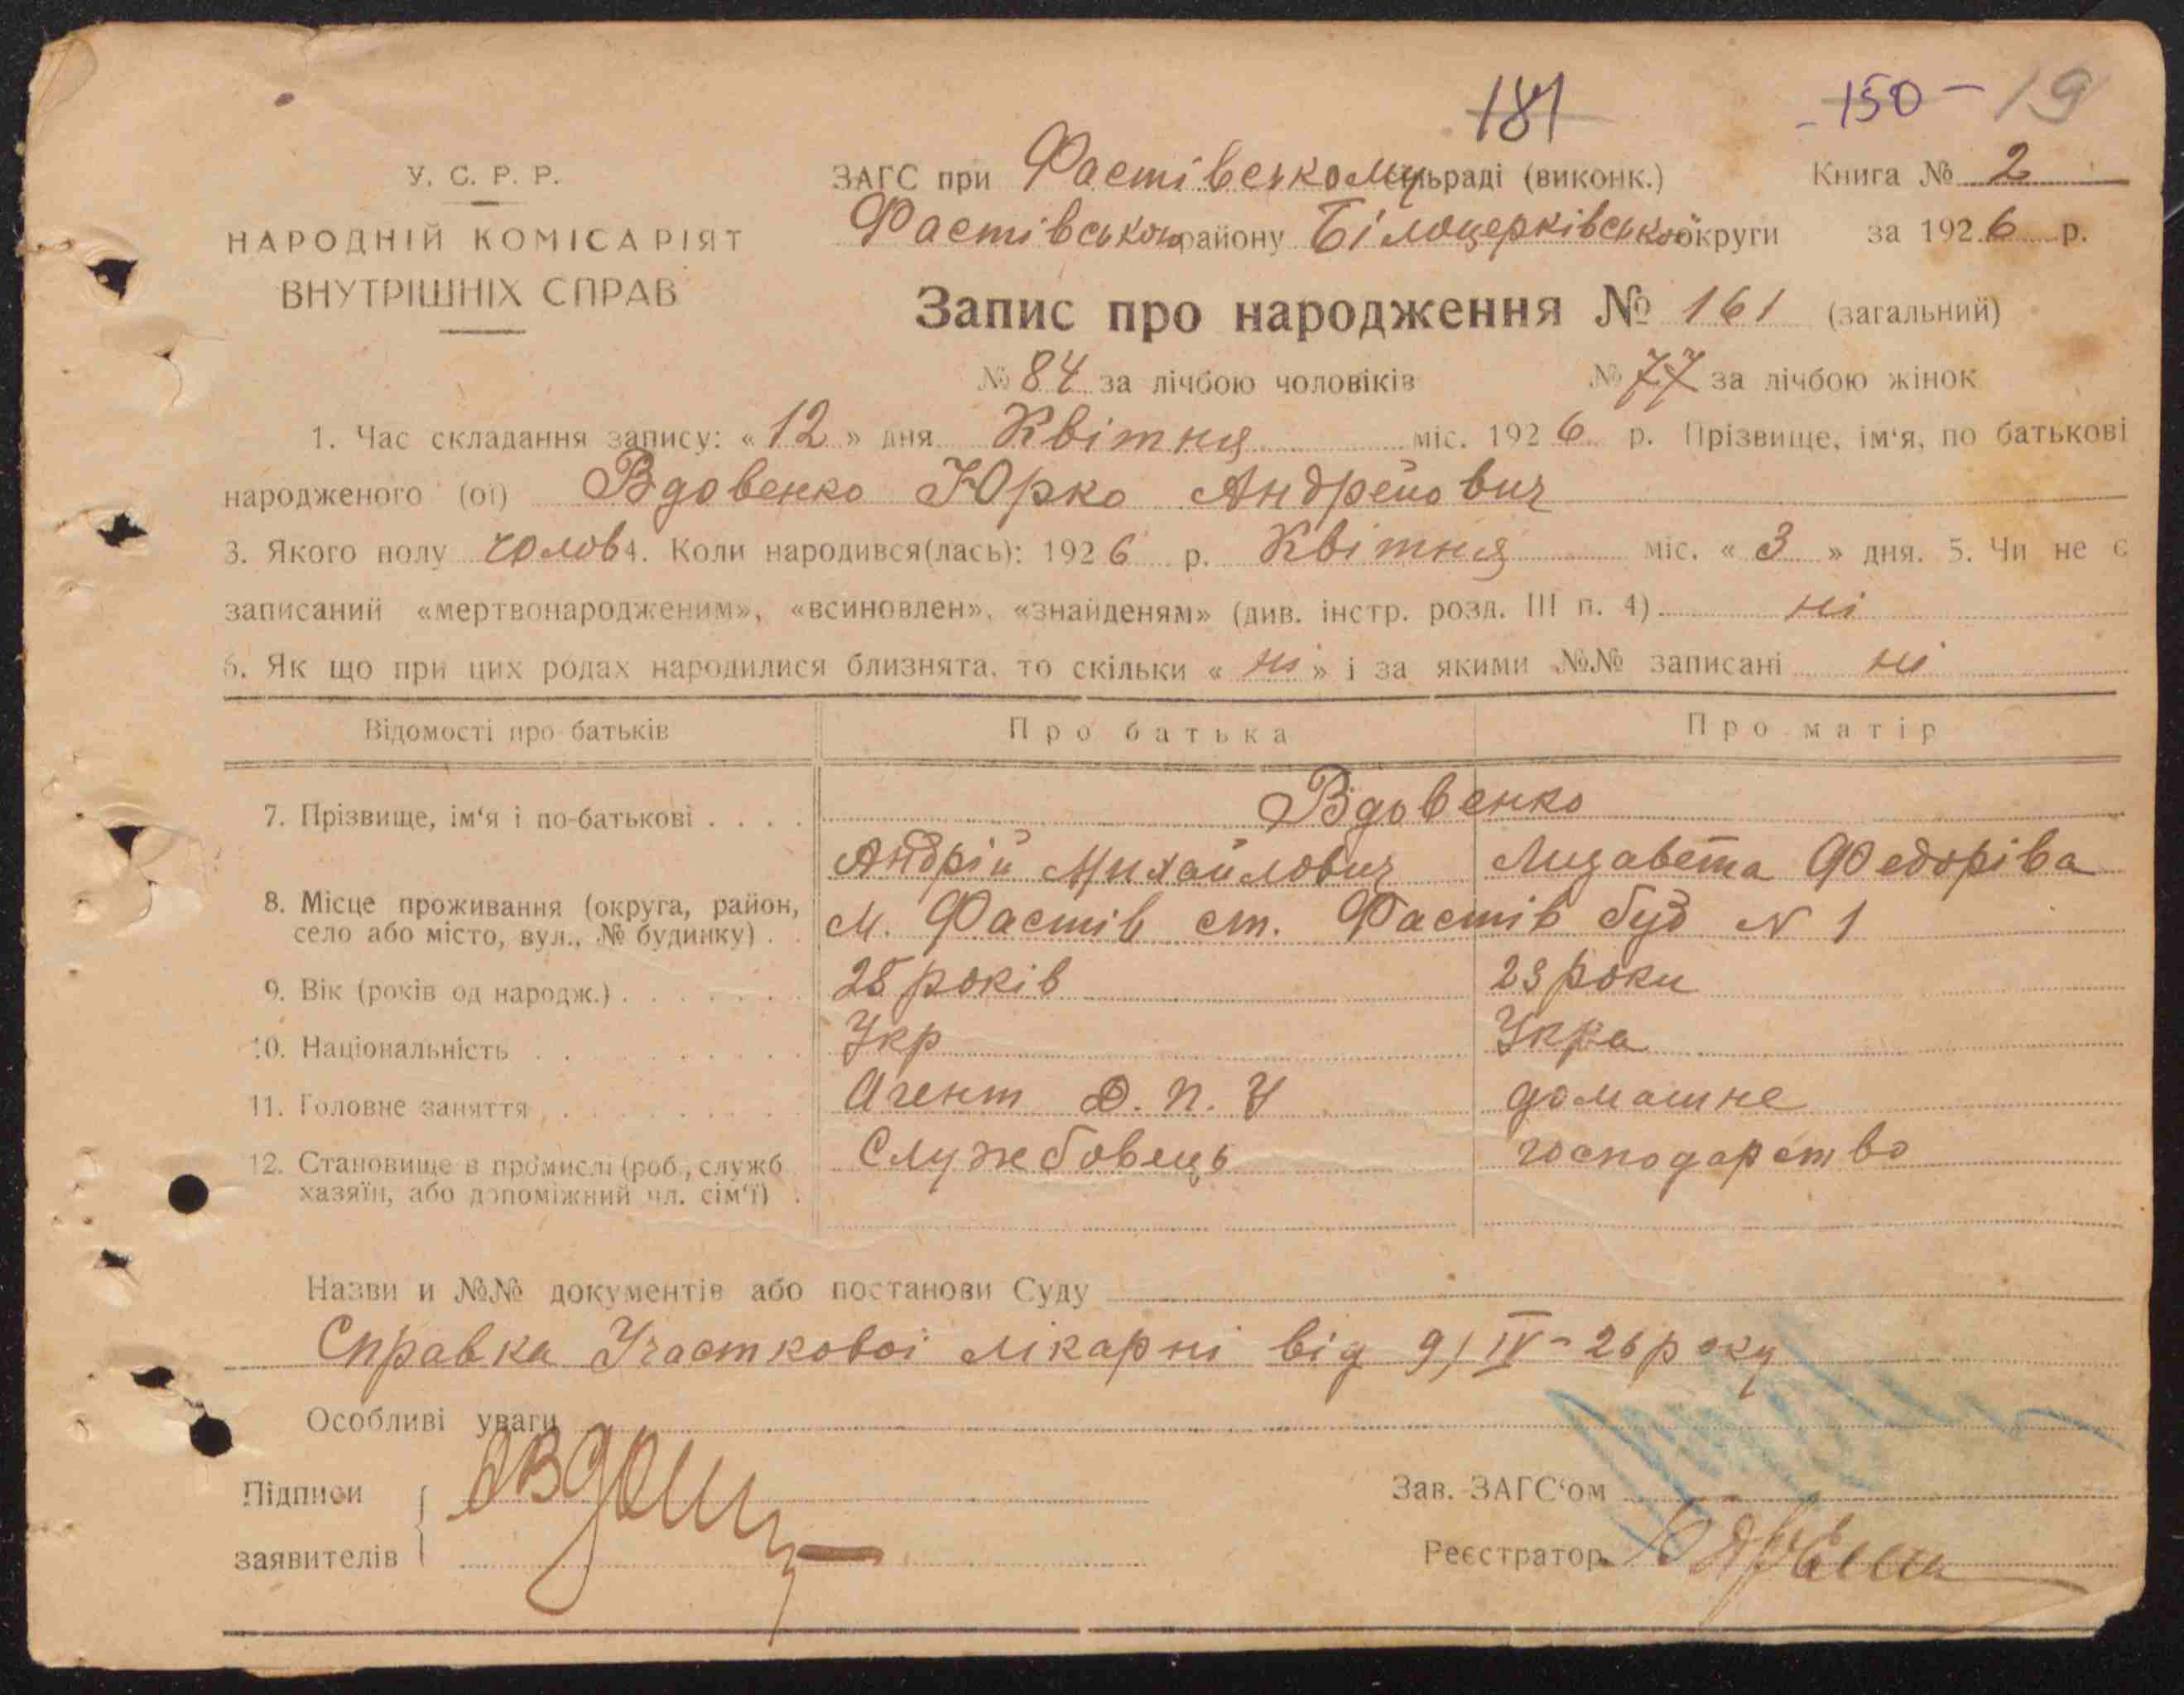 181
150 - 19
У. С. Р. Р.
НАРОДНІЙ КОМІСАРІЯТ
ВНУТРІШНІХ СПРАВ
ЗАГС при Фастівському сільраді (виконк.) Книга № 2
Фастівського району Білоцерківської округи за 1926 р.
Запис про народження № 161 (загальний)
№ 84 за лічбою чоловіків № 77 за лічбою жінок
1. Час складання запису: «12» дня Квітня міс. 1926 р. Прізвище, ім'я, по батькові
народженого (ої) Вдовенко Юрко Андрейович
3. Якого полу чолов 4. Коли народився(лась): 1926 р. Квітня міс. «3» дня. 5. Чи не є
записаний «мертвонародженим», «всиновлен», «знайденям» (див. інстр. розд. III п. 4) ні
6. Як що при цих родах народилися близнята, то скільки «ні» і за якими №№ записані ні
Відомості про батьків Про батька Про матір
7. Прізвище, ім'я і по-батькові Вдовенко
Андрій Михайлович Лизавета Федорівa
8. Місце проживання (округа, район,
село або місто, вул., № будинку) М. Фастів ст. Фастів буд N 1
9. Вік (років од народж.) 25 років 23 роки
10. Національність Укр Укр-а
11. Головне заняття Агент Д. П. У домашнє
12. Становище в промислі (роб., служб.
хазяїн, або допоміжний чл. сім'ї) Службовець господарство
Назви и №№ документів або постанови Суду
Справка Участкової лікарні від 9/IV-26 року
Особливі уваги
Підписи
заявителів
Зав. ЗАГС'ом
Реєстратор